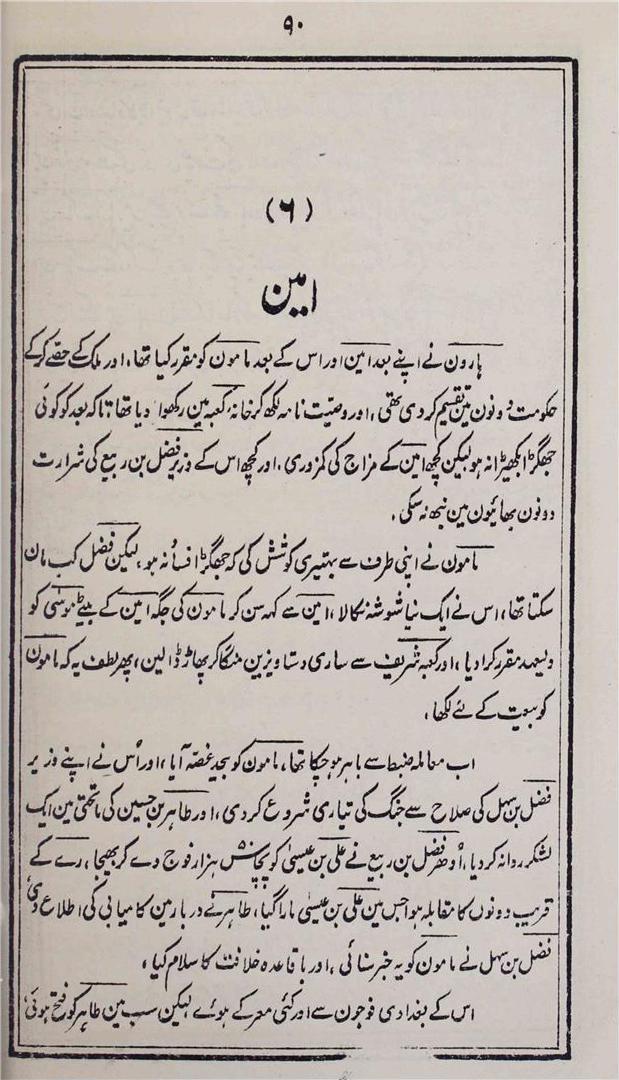 ۹۰
(۶)
امین
ہارون نے اپنے بعد امین اور اس کے بعد مامون کو مقرر کیا تھا، اور ملک کے حصے کر کے
حکومت دونون مین تقسیم کر دی تھی، اور وصیت نامہ لکھ کر خانہ کعبہ مین رکھوا دیا تھا، تاکہ بعد کو کوئی
جھگڑا بکھیڑا نہ ہو لیکن کچھ امین کے مزاج کی کمزوری، اور کچھ اس کے وزیر فضل بن ربیع کی شرارت
دونون بھائیون مین نبھ نہ سکی،
مامون نے اپنی طرف سے بہتیری کوشش کی کہ جھگڑا فساد نہ ہو، لیکن فضل کب مان
سکتا تھا، اس نے ایک نیا شوشہ نکالا، امین سے کہہ سن کر مامون کی جگہ امین کے بیٹے موسٰی کو
ولیعہد مقرر کرا دیا، اور کعبہ شریف سے ساری دستاویزین منگا کر پھاڑ ڈالین، پھر لطف یہ کہ مامون
کو بیعت کے لئے لکھا،
اب معاملہ ضبط سے باہر ہو چکا تھا، مامون کو بیحد غصہ آیا، اور اُس نے اپنے وزیر
فضل بن سہل کی صلاح سے جنگ کی تیاری شروع کر دی، اور طاہر بن حسین کی ماتحتی مین ایک
لشکر روانہ کر دیا، اُدھر فضل بن ربیع نے علی بن عیسیٰ کو پچاس ہزار فوج دے کر بھیجا، رے کے
قریب دونوں کا مقابلہ ہوا جس مین علی بن عیسیٰ مارا گیا، طاہر نے دربار مین کامیابی کی اطلاع دی،
فضل بن سہل نے مامون کو یہ خبر سنائی، اور باقاعدہ خلافت کا سلام کیا،
اس کے بغدادی فوجون سے اور کئی معرکے ہوئے لیکن سب مین طاہر کو فتح ہوئی،